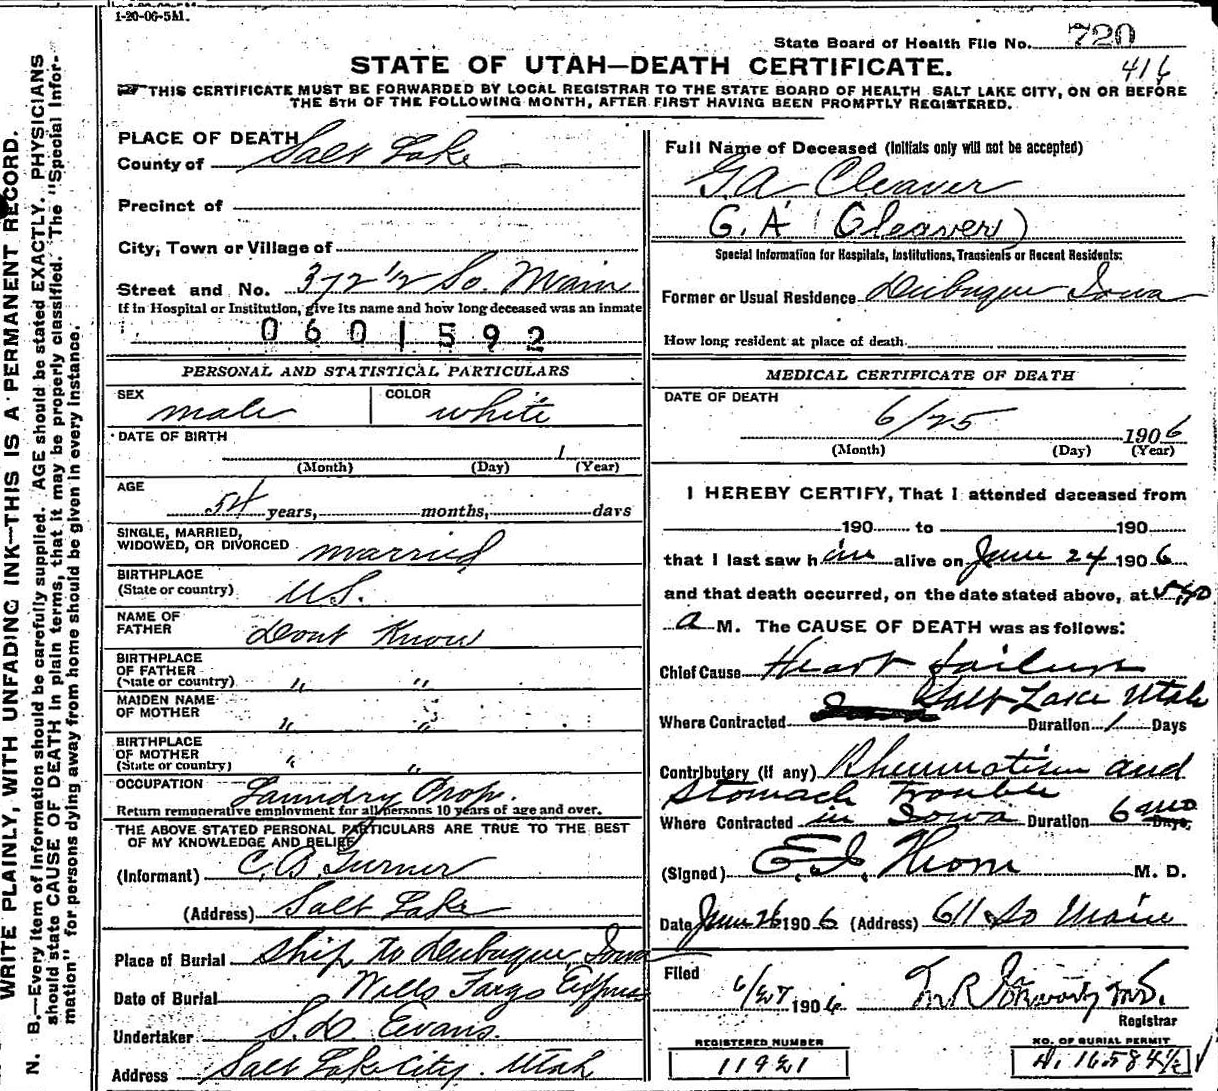 1-20-06-5M.
State Board of Health File No. 720
416
STATE OF UTAH—DEATH CERTIFICATE.
THIS CERTIFICATE MUST BE FORWARDED BY LOCAL REGISTRAR TO THE STATE BOARD OF HEALTH SALT LAKE CITY, ON OR BEFORE
THE 5TH OF THE FOLLOWING MONTH, AFTER FIRST HAVING BEEN PROMPTLY REGISTERED.
WRITE PLAINLY, WITH UNFADING INK—THIS IS A PERMANENT RECORD.
N. B.—Every item of information should be carefully supplied. AGE should be stated EXACTLY. PHYSICIANS
should state CAUSE OF DEATH in plain terms, that it may be properly classified. The "Special Infor-
mation" for persons dying away from home should be given in every instance.
PLACE OF DEATH
County of Salt Lake
Precinct of
City, Town or Village of
Street and No. 372 1/2 So. Main
If in Hospital or Institution, give its name and how long deceased was an inmate
0601592
PERSONAL AND STATISTICAL PARTICULARS
SEX male COLOR white
DATE OF BIRTH 1
(Month) (Day) (Year)
AGE
54 years, months, days
SINGLE, MARRIED,
WIDOWED, OR DIVORCED married
BIRTHPLACE
(State or country) U.S.
NAME OF
FATHER Dont Know
BIRTHPLACE
OF FATHER
(State or country) " "
MAIDEN NAME
OF MOTHER " "
BIRTHPLACE
OF MOTHER
(State or country) " "
OCCUPATION Laundry Prop.
Return remunerative employment for all persons 10 years of age and over.
THE ABOVE STATED PERSONAL PARTICULARS ARE TRUE TO THE BEST
OF MY KNOWLEDGE AND BELIEF
(Informant) C. B. Turner
(Address) Salt Lake
Place of Burial Ship to Dubuque, Iowa
Date of Burial Wells Fargo Express
Undertaker S. D. Evans.
Address Salt Lake City. Utah
Full Name of Deceased (Initials only will not be accepted)
G A Cleaver
G. A (Cleaver)
Special Information for Hospitals, Institutions, Transients or Recent Residents:
Former or Usual Residence Dubuque Iowa
How long resident at place of death
MEDICAL CERTIFICATE OF DEATH
DATE OF DEATH
6/25 1906
(Month) (Day) (Year)
I HEREBY CERTIFY, That I attended deceased from
190 to 190
that I last saw him alive on June 24 1906
and that death occurred, on the date stated above, at
a M. The CAUSE OF DEATH was as follows:
Chief Cause Heart failure
Salt Lake Utah
Where Contracted Duration 1 Days
Contributory (if any) Rheumatism and
Stomach trouble
Where Contracted in Iowa Duration 6 mo Days,
(Signed) E. I. M. D.
Date June 26 1906 (Address) 611 So Main
Filed
6/27 1906 M.D.
Registrar
REGISTERED NUMBER
11921
NO. OF BURIAL PERMIT
A. 16584 1/2